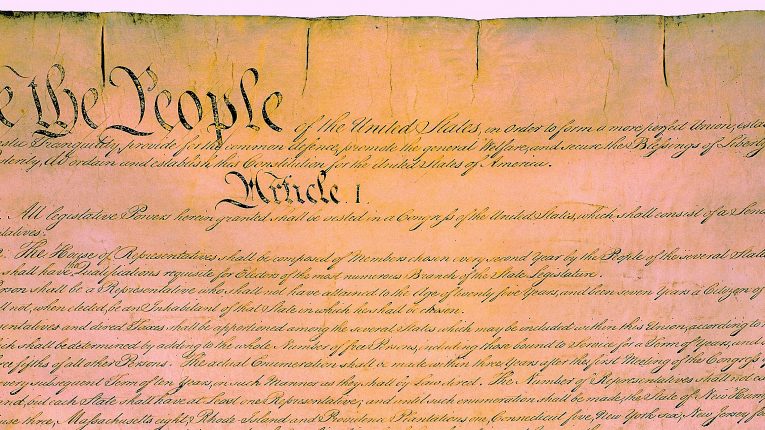 e the People of the United States, in Order to form a more perfect Union, esta
estic Tranquility, provide for the common defence, promote the general Welfare, and secure the Blessings of Liberty
osterity, do ordain and establish this Constitution for the United States of America.
Article. I.
1. All legislative Powers herein granted shall be vested in a Congress of the United States, which shall consist of a Sena
ntatives.
2. The House of Representatives shall be composed of Members chosen every second Year by the People of the several States
shall have the Qualifications requisite for Electors of the most numerous Branch of the State Legislature.
erson shall be a Representative who shall not have attained to the Age of twenty five Years, and been seven Years a Citizen of
ll not, when elected, be an Inhabitant of that State in which he shall be chosen.
esentatives and direct Taxes shall be apportioned among the several States which may be included within this Union, according to
ich shall be determined by adding to the whole Number of free Persons, including those bound to Service for a Term of Years, and
ree fifths of all other Persons. The actual Enumeration shall be made within three Years after the first Meeting of the Congress
very subsequent Term of ten Years, in such Manner as they shall by Law direct. The Number of Representatives shall not
nd, but each State shall have at Least one Representative; and until such enumeration shall be made, the State of New Hamp
use three, Massachusetts eight, Rhode-Island and Providence Plantations one, Connecticut five, New-York six, New Jersey fo